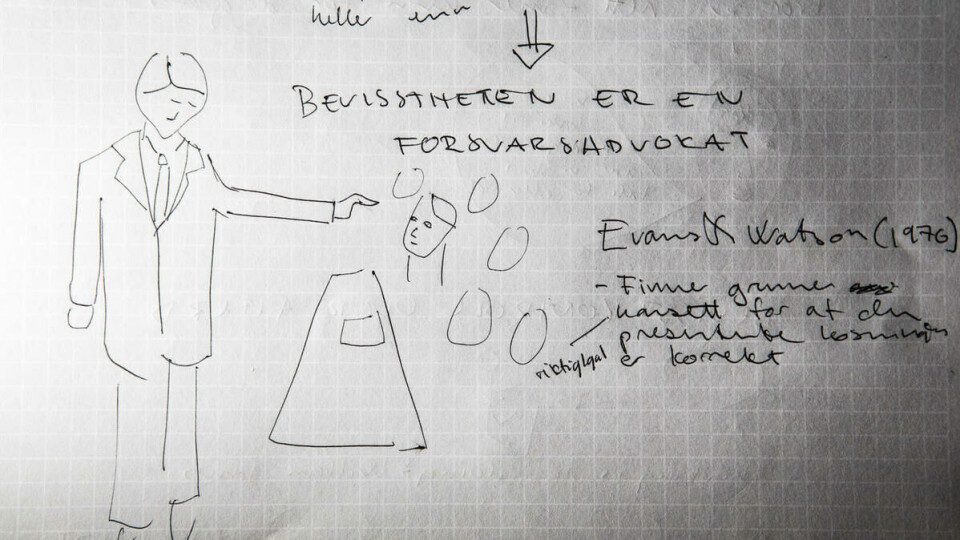 heller enn
BEVISSTHETEN ER EN
FORSVARSADVOKAT
Evans & Watson (1976)
- Finne grunner
uansett for at den
presenterte løsningen
er korrekt
riktig/gal